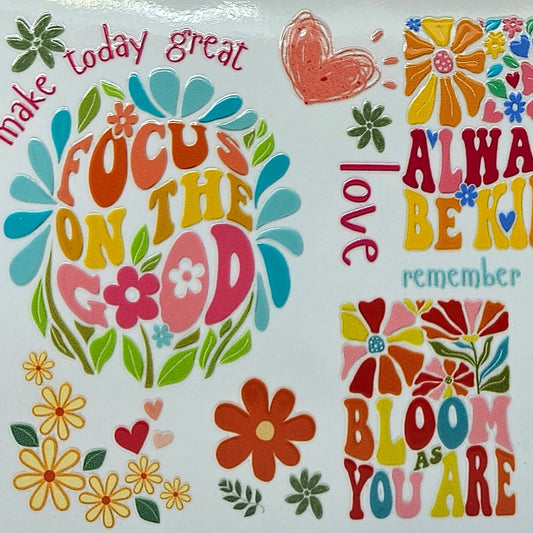 make today great
FOCUS
ON THE
GOOD
love
ALWA
BE KI
remember
BLOOM
AS
YOU ARE